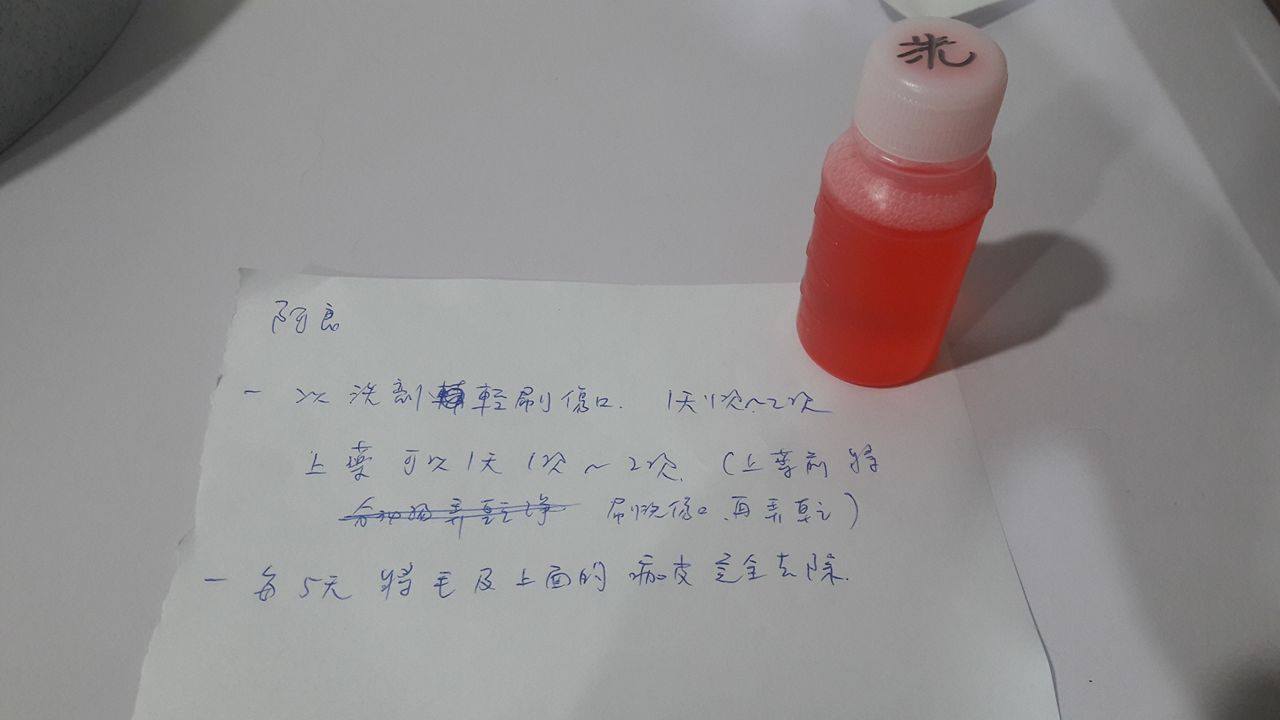 洗
阿良
- 以洗劑輕刷傷口. 1天1次~2次
上藥可以1天1次~2次. (上藥前將
刷洗傷口、再弄乾)
- 每5天將毛及上面的痂皮完全去除.